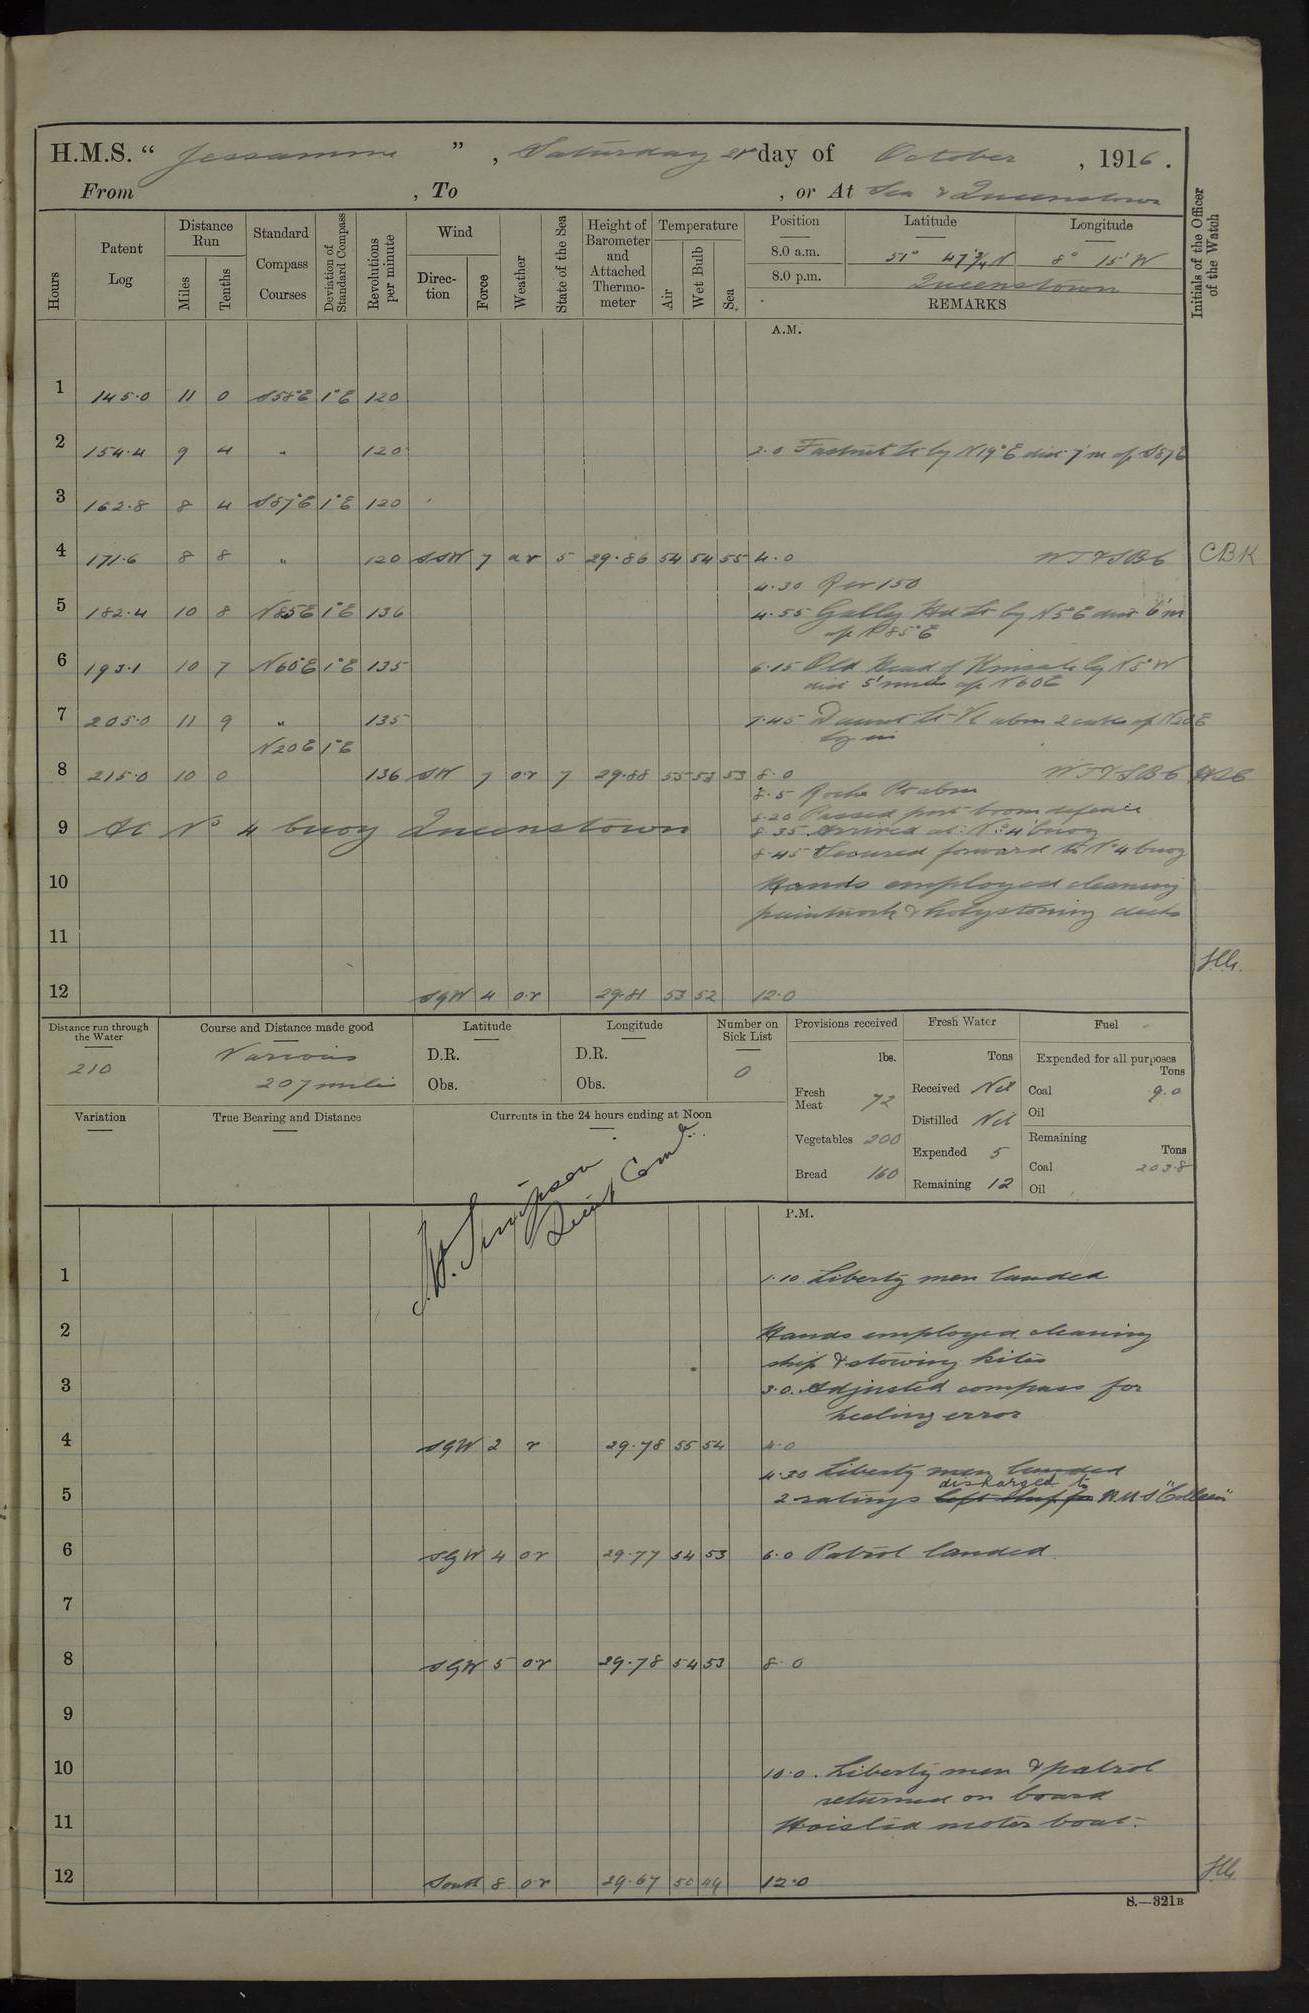 H.M.S. “ Jessamine ” , Saturday 21st day of October , 1916 .
From , To , or At Sea & Queenstown
Hours
Patent Log
Distance Run
Miles
Tenths
Standard Compass Courses
Deviation of Standard Compass
Revolutions per minute
Wind
Direction
Force
Weather
State of the Sea
Height of Barometer and Attached Thermometer
Temperature
Air
Wet Bulb
Sea
Position Latitude Longitude
8.0 a.m. 51° 47¾' N 8° 15' W
8.0 p.m. Queenstown
REMARKS
Initials of the Officer of the Watch
A.M.
1 145.0 11 0 S58°E 1°E 120
2 154.4 9 4 " 120 2.0 Fastnet Lt by N19°E dist 7'm a/c S87E
3 162.8 8 4 S87°E 1°E 120
4 171.6 8 8 " 120 SSW 7 5 29.86 54 54 55 4.0 WT & SBC CBK
4.30 Rev 150
5 182.4 10 8 N85E 1°E 136 4.55 Galley Hd Lt by N5°E dist 6'm
a/c N85°E
6 193.1 10 7 N60°E 1°E 135 6.15 Old Head of Kinsale by N5°W
dist 5' miles a/c N60E
7 205.0 11 9 " 135 7.45 Daunt Lt Vl abm 2 cables a/c N20E
N20E 1°E
8 215.0 10 0 136 SW 7 or 7 29.88 55 53 53 8.0 WT & SBC
8.5 Roche Pt abm
8.20 Passed port boom defence
9 At No 4 buoy Queenstown 8.35 Arrived at No 4 buoy
8.45 Secured forward to No 4 buoy
10 Hands employed cleaning
paintwork & holystoning decks
11
12 SWW 4 or 29.81 53 52 12.0
Distance run through the Water
210
Course and Distance made good
Various
207 miles
Latitude
D.R.
Obs.
Longitude
D.R.
Obs.
Number on Sick List
0
Provisions received
lbs.
Fresh Meat 72
Vegetables 200
Bread 160
Fresh Water
Tons
Received Nil
Distilled Nil
Expended 5
Remaining 12
Fuel
Expended for all purposes
Tons
Coal 9.0
Oil
Remaining
Tons
Coal 203.8
Oil
Variation
True Bearing and Distance
Currents in the 24 hours ending at Noon
Simpson
Lieut Comdr
P.M.
1 1.10 Liberty men landed
2 Hands employed cleaning
ship & stowing kites
3 3.0. Adjusted compass for
heeling error
4 2 r 29.78 55 54 4.0
4.30 Liberty men landed
discharged to
5 2 ratings left ship for H.M.S "Colleen"
6 4 or 29.77 54 53 6.0 Patrol landed
7
8 5 or 29.78 54 53 8.0
9
10 10.0. Liberty men & patrol
returned on board
11 Hoisted motor boat.
12 South 8 or 29.67 50 49 12.0
S.—321B